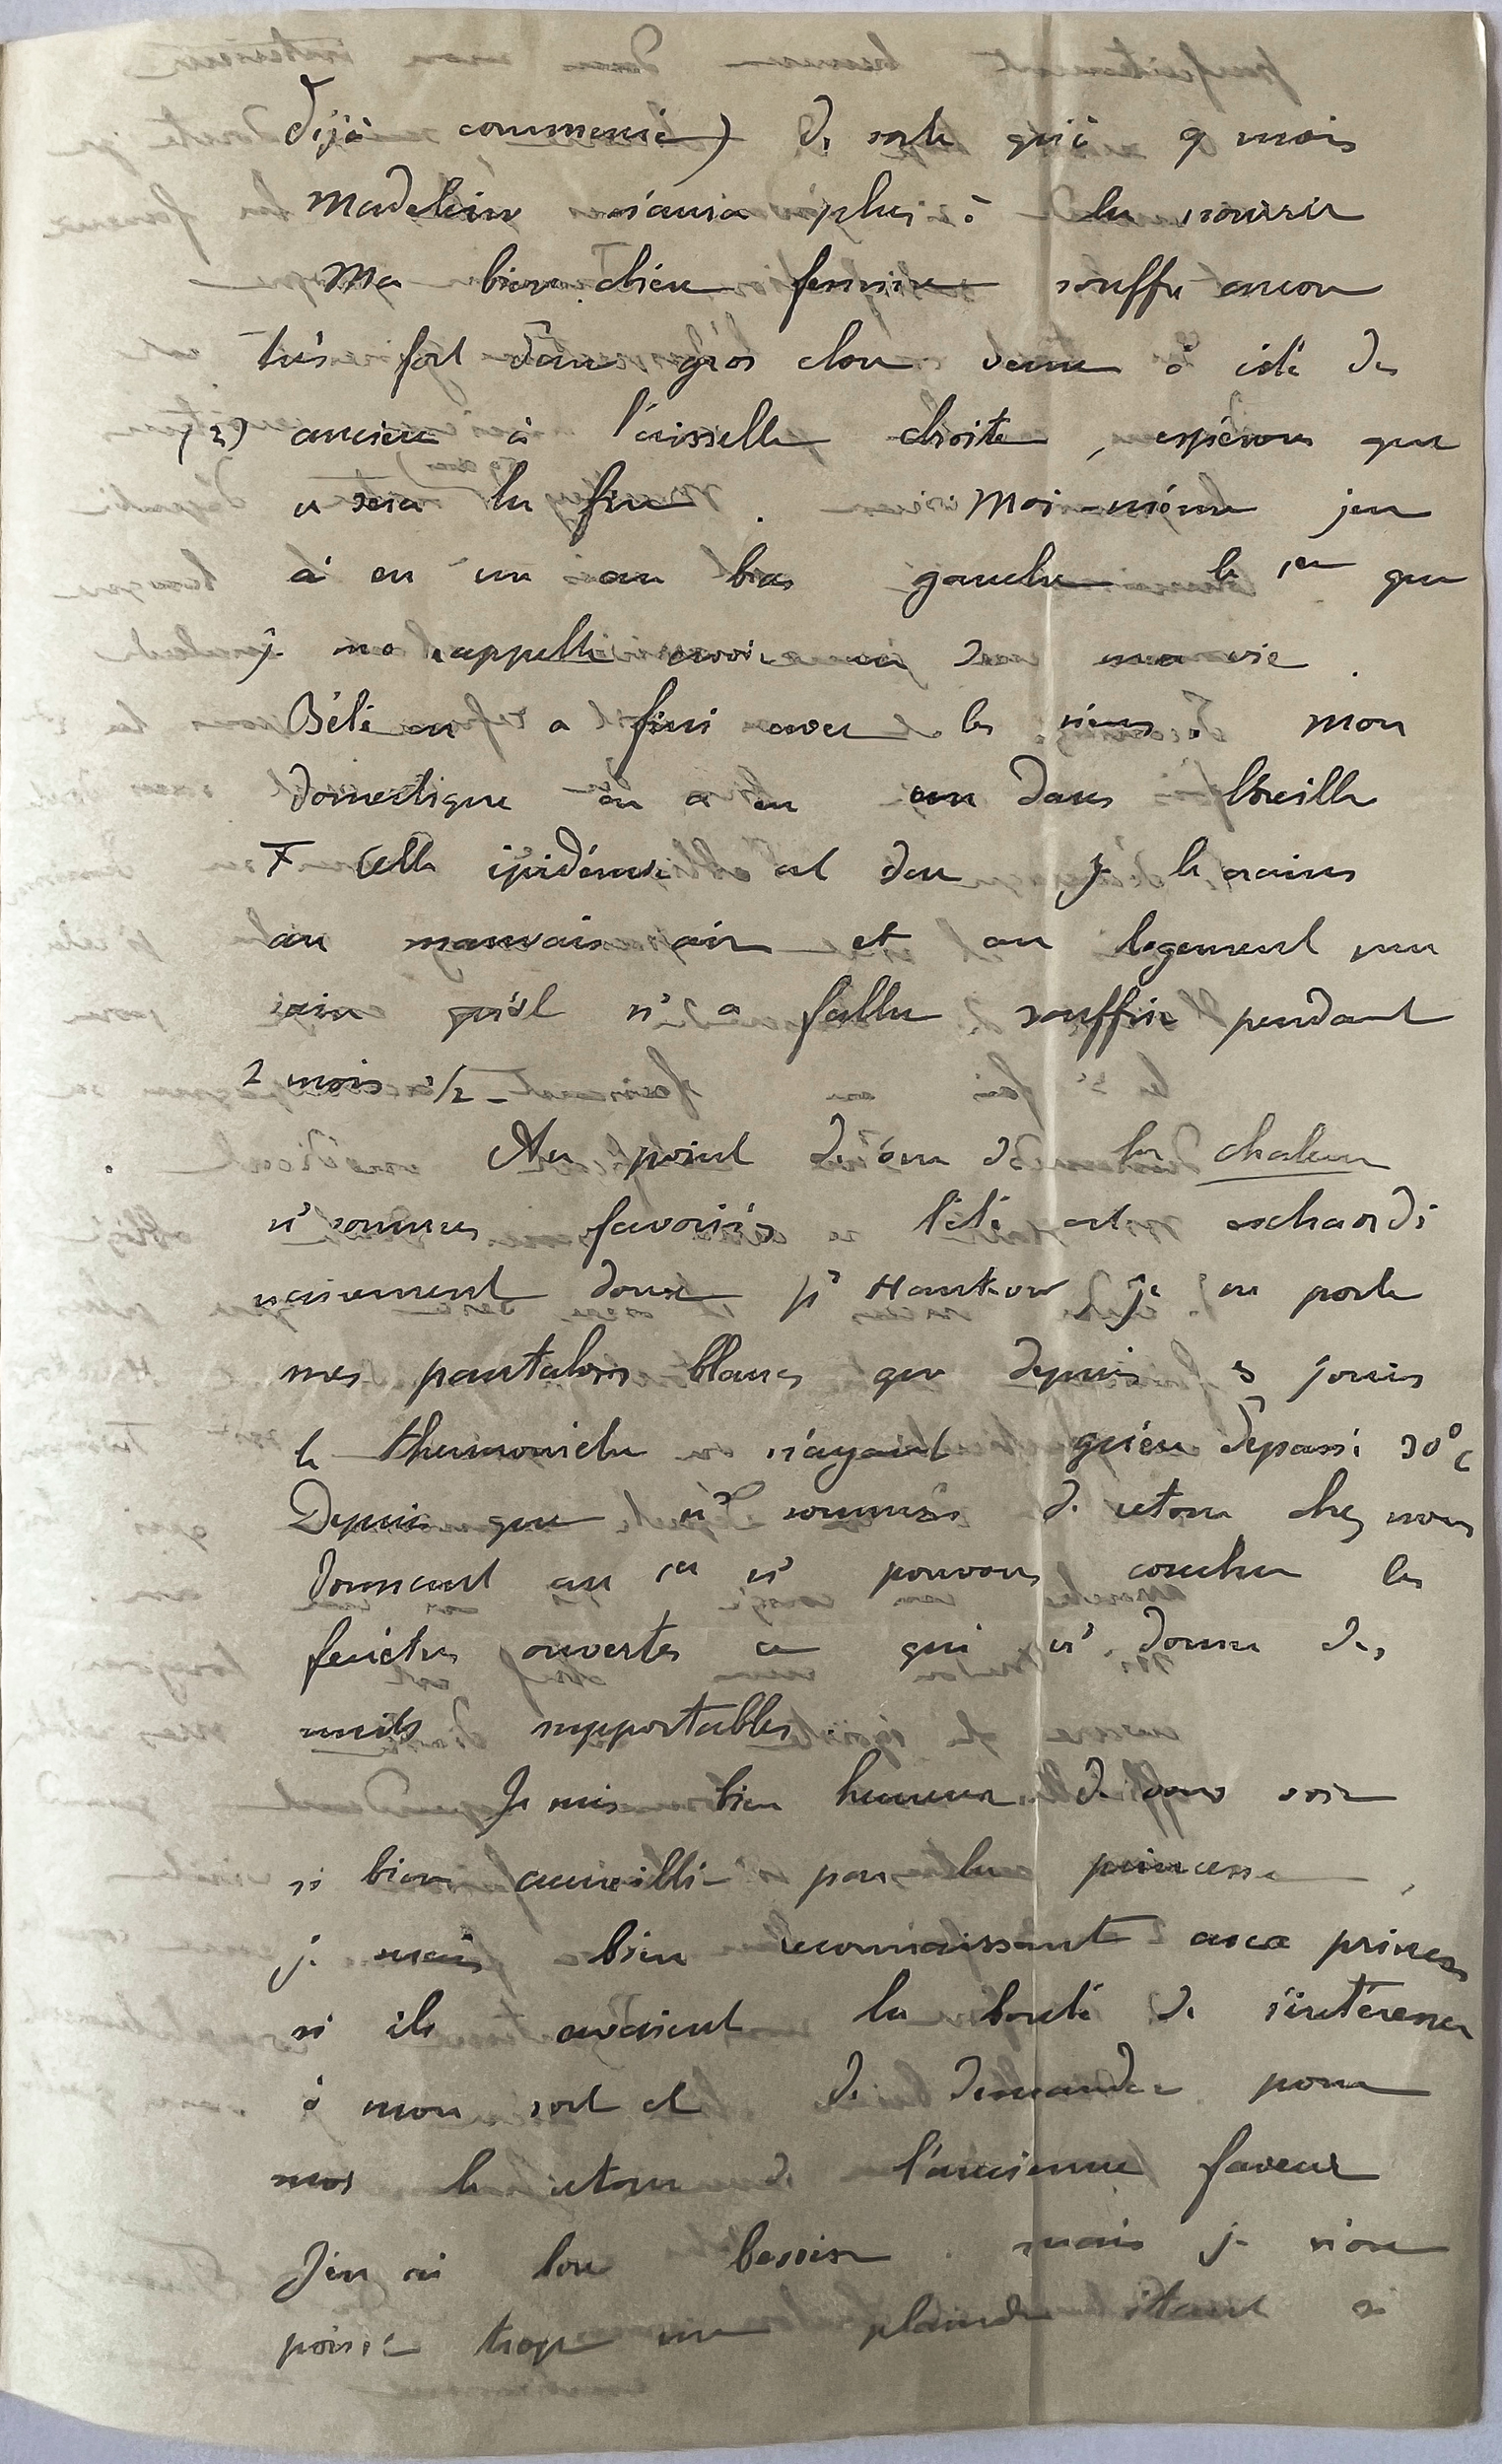 déjà commencé) de sorte qu'à 9 mois
Madeleine n'aura plus à la nourrir
Ma bien chère femme souffre encore
très fort d'un gros clou venu à côté de
(2) ancien à l'aisselle droite, espérons que
ce sera la fin. Moi-même j'en
ai eu un au bas gauche le 1er que
je me rappelle avoir eu de ma vie.
Bébé en a fini avec les siens. Mon
domestique en a eu un dans l'oreille
Cette épidémie est due je le crains
au mauvais air et au logement peu
sain qu'il ns a fallu souffrir pendant
2 mois 1/2 -
Au point de vue de la chaleur
ns sommes favorisés l'été est extraordi
nairement doux pr Hankow je ne porte
mes pantalons blancs que depuis 3 jours
le thermomètre n'ayant guère dépassé 30° c
Depuis que ns sommes de retour chez nous
dormant au 1er ns pouvons coucher les
fenêtres ouvertes ce qui ns donne des
nuits supportables
Je suis bien heureux de vous voir
si bien accueilli par la princesse,
je serais bien reconnaissant aux princes
si ils avaient la bonté de s'intéresser
à mon sort et de demander pour
moi le retour de l'ancienne faveur
J'en ai bon besoin. mais je n'ose
pas trop me plaindre étant si